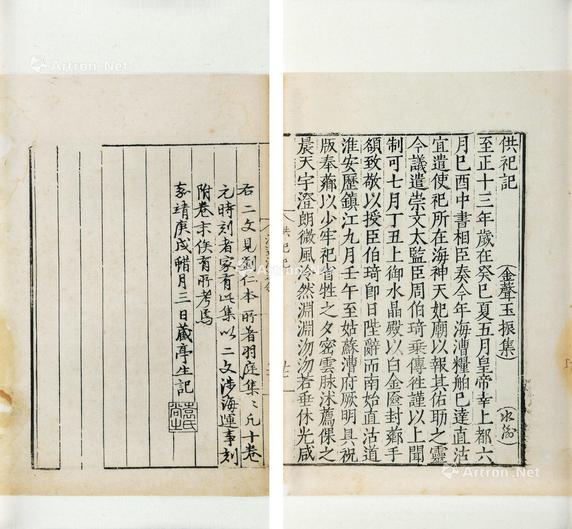 供祀記
（金聲玉振集）
至正十三年歲在癸巳夏五月皇帝幸上都六
月己酉中書相臣奏今年海漕糧舶已達直沽
宜遣使祀所在海神天妃廟以報其佑助之靈
今議遣崇文太監臣周伯琦乘傳往謹以上聞
制可七月丁丑上御水晶殿以白金廞封薌手
頟致敬以授臣伯琦卽日陛辭而南始直沽道
淮安歷鎮江九月壬午至姑蘇漕府厥明具祝
版奉薌以少牢祀省牲之夕密雲脉沭薦倮之
晨天宇澄朗微風泠然淵淵沕沕若垂休光咸
供祀記
右二文見劉仁本所著羽庭集〻凡十卷
元時刻者家有此集以二文涉海運事刻
附卷末俟有所考焉
嘉靖庚戌臘月三日藏亭生記
Artron.Net
Artron.Net
Artron.Net